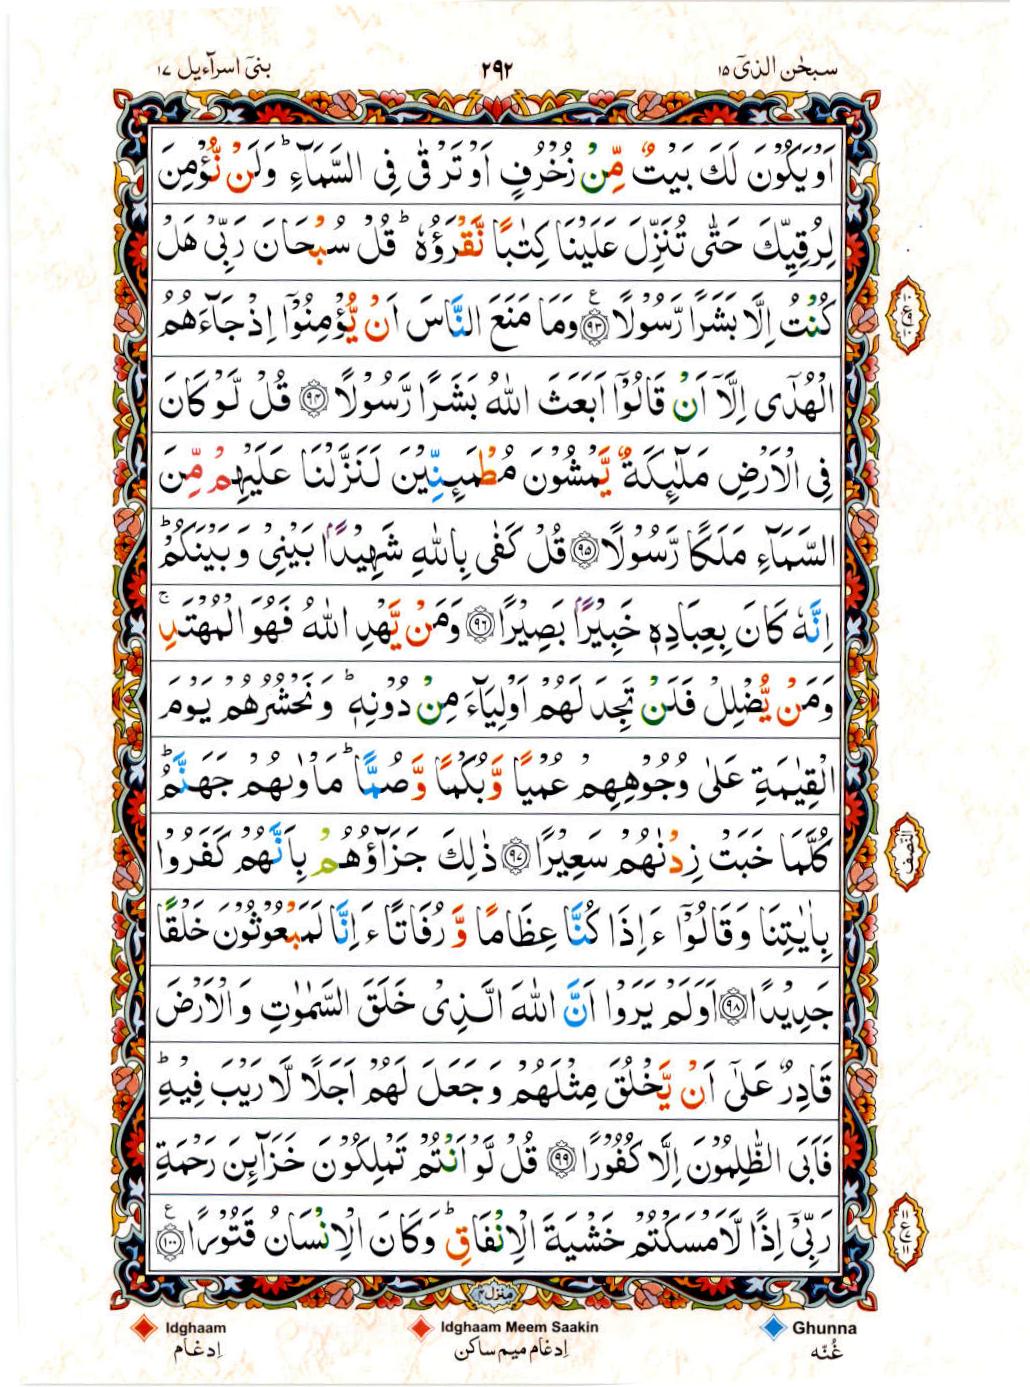 سبحٰن الذیٓ ۱۵
۲۹۲
بنیٓ اسرآءیل ۱۷
اَوۡيَكُوۡنَ لَكَ بَيۡتٌ مِّنۡ زُخۡرُفٍ اَوۡتَرۡقٰى فِى السَّمَآءِ ؕ وَلَنۡ نُّؤۡمِنَ
لِرُقِيِّكَ حَتّٰى تُنَزِّلَ عَلَيۡنَا كِتٰبًا نَّقۡرَؤُهٗ ؕ قُلۡ سُبۡحَانَ رَبِّىۡ هَلۡ
كُنۡتُ اِلَّا بَشَرًا رَّسُوۡلًا ﴿۹۳﴾ ع وَمَا مَنَعَ النَّاسَ اَنۡ يُّؤۡمِنُوۡۤا اِذۡجَآءَهُمُ
الۡهُدٰٓى اِلَّاۤ اَنۡ قَالُوۡۤا اَبَعَثَ اللّٰهُ بَشَرًا رَّسُوۡلًا ﴿۹۴﴾ قُلۡ لَّوۡكَانَ
فِى الۡاَرۡضِ مَلٰٓئِكَةٌ يَّمۡشُوۡنَ مُطۡمَئِنِّيۡنَ لَـنَزَّلۡنَا عَلَيۡهِمۡ مِّنَ
السَّمَآءِ مَلَكًا رَّسُوۡلًا ﴿۹۵﴾ قُلۡ كَفٰى بِاللّٰهِ شَهِيۡدًۢا بَيۡنِىۡ وَبَيۡنَكُمۡ ؕ
اِنَّهٗ كَانَ بِعِبَادِهٖ خَبِيۡرًۢا بَصِيۡرًا ﴿۹۶﴾ وَمَنۡ يَّهۡدِ اللّٰهُ فَهُوَ الۡمُهۡتَدِ ۚ
وَمَنۡ يُّضۡلِلۡ فَلَنۡ تَجِدَ لَهُمۡ اَوۡلِيَآءَ مِنۡ دُوۡنِهٖ ؕ وَنَحۡشُرُهُمۡ يَوۡمَ
الۡقِيٰمَةِ عَلٰى وُجُوۡهِهِمۡ عُمۡيًا وَّبُكۡمًا وَّصُمًّا ؕ مَاۡوٰٮهُمۡ جَهَـنَّمُ ؕ
كُلَّمَا خَبَتۡ زِدۡنٰهُمۡ سَعِيۡرًا ﴿۹۷﴾ ذٰلِكَ جَزَآؤُهُمۡ بِاَنَّهُمۡ كَفَرُوۡا
بِاٰيٰتِنَا وَقَالُوۡۤا ءَاِذَا كُنَّا عِظَامًا وَّرُفَاتًا ءَاِنَّا لَمَبۡعُوۡثُوۡنَ خَلۡقًا
جَدِيۡدًا ﴿۹۸﴾ اَوَلَمۡ يَرَوۡا اَنَّ اللّٰهَ الَّذِىۡ خَلَقَ السَّمٰوٰتِ وَالۡاَرۡضَ
قَادِرٌ عَلٰٓى اَنۡ يَّخۡلُقَ مِثۡلَهُمۡ وَجَعَلَ لَهُمۡ اَجَلًا لَّا رَيۡبَ فِيۡهِ ؕ
فَاَبَى الظّٰلِمُوۡنَ اِلَّا كُفُوۡرًا ﴿۹۹﴾ قُلۡ لَّوۡاَنۡتُمۡ تَمۡلِكُوۡنَ خَزَآئِنَ رَحۡمَةِ
رَبِّىۡۤ اِذًا لَّاَمۡسَكۡتُمۡ خَشۡيَةَ الۡاِنۡفَاقِ ؕ وَكَانَ الۡاِنۡسَانُ قَتُوۡرًا ﴿۱۰۰﴾ ع
النصف
منزل ۴
Idghaam
Idghaam Meem Saakin
Ghunna
اِدغام
اِدغام میم ساکن
غُنّه